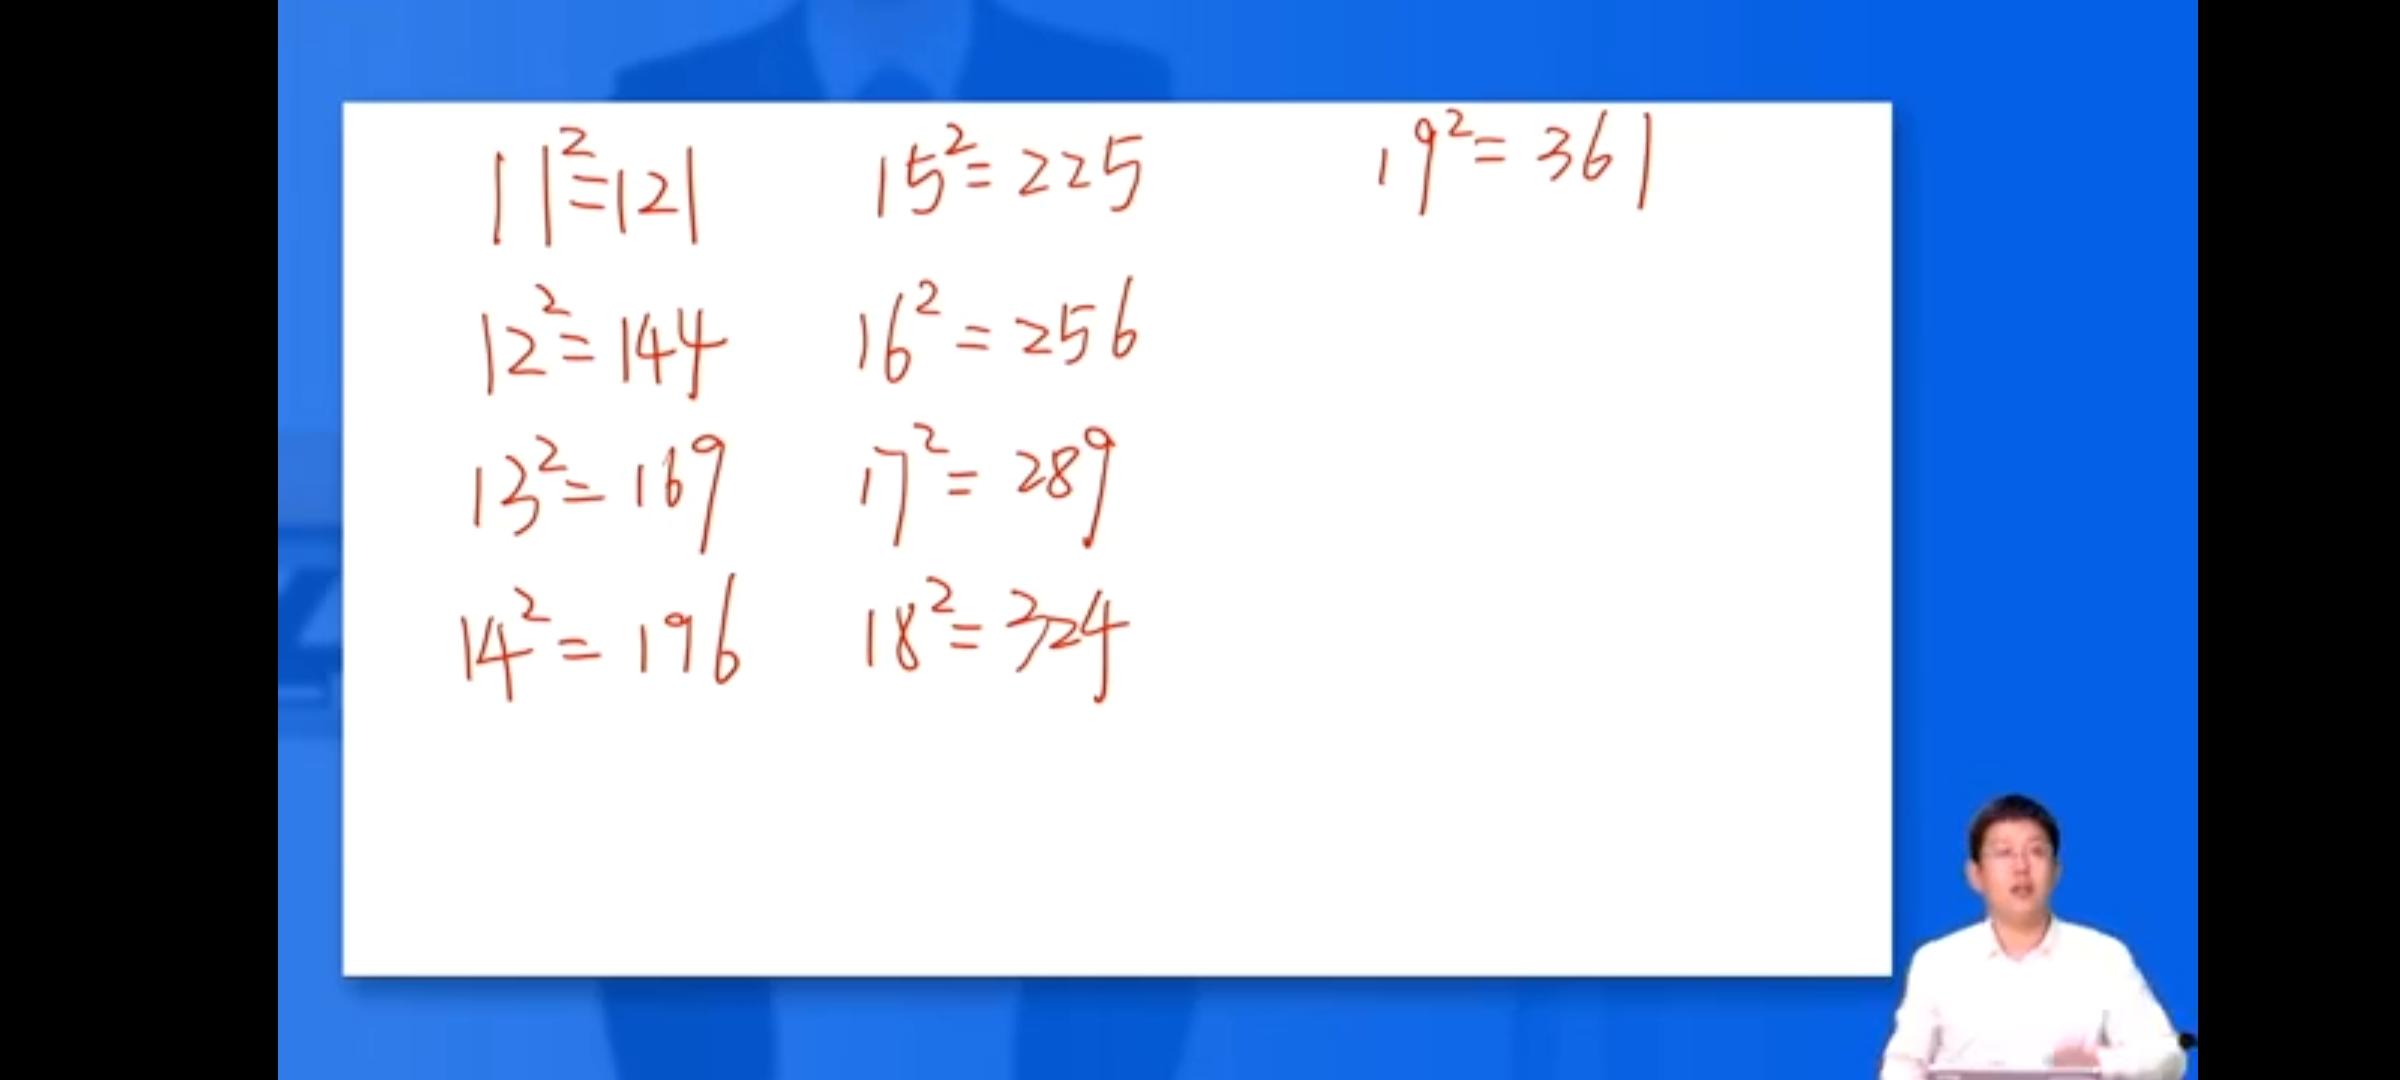 11²=121
12²=144
13²=169
14²=196
15²=225
16²=256
17²=289
18²=324
19²=361